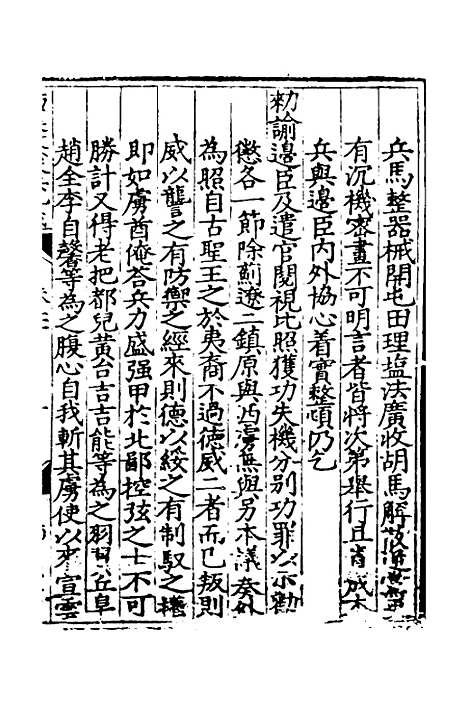 兵馬整器械開屯田理塩法廣收胡馬解散逆黨
有沉機密畫不可明言者皆將次第舉行且責成本
兵與邊臣内外協心着實整頓乃乞
勑諭邊臣及遣官閱視比照獲功失機分别功罪以示勸
懲各一節除薊遼二鎮原與西虜無與另本議奏外
為照自古聖王之於夷裔不過德威二者而已叛則
威以讋之有防禦之經來則德以綏之有制馭之權
即如虜酋俺荅兵力盛强甲於北鄙控弦之士不可
勝計又得老把都兒黄台吉吉能等為之羽翼丘阜
趙全李自馨等為之腹心自我斬其虜使以來宣雲